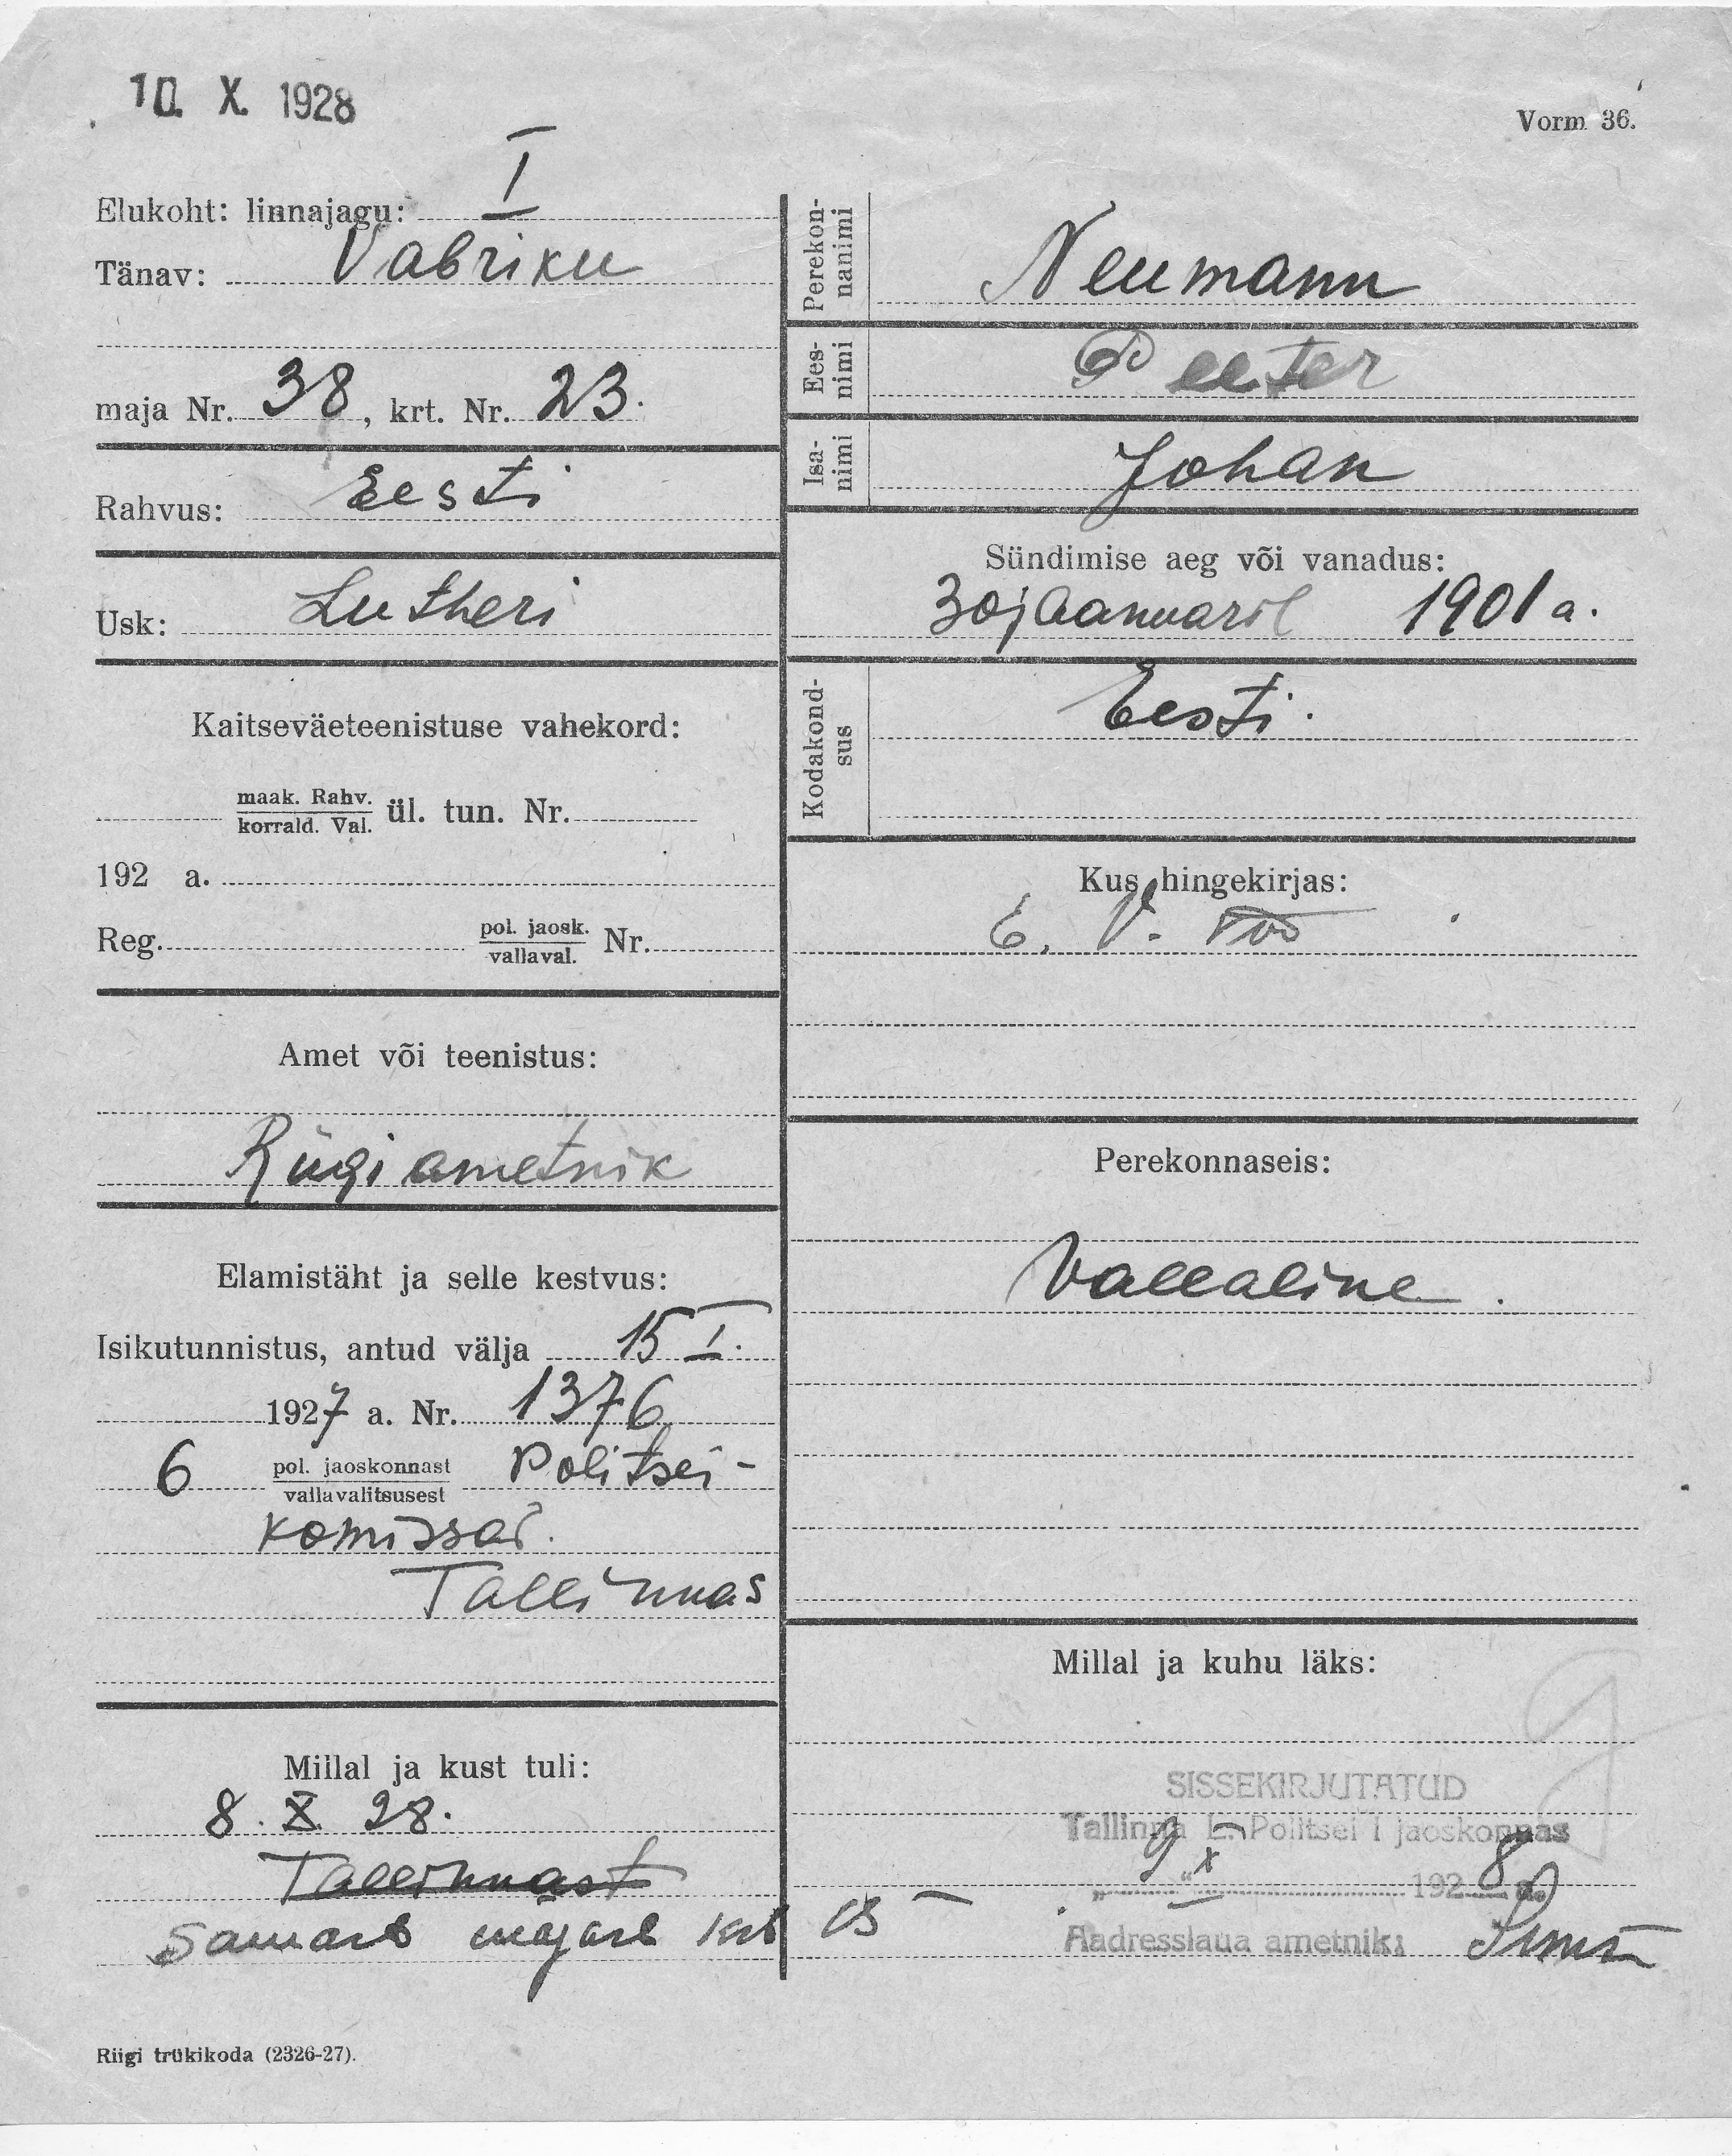 10. X. 1928
Vorm 36.
Elukoht: linnajagu: I
Tänav: Vabriku
maja Nr. 38, krt. Nr. 23.
Rahvus: Eesti
Usk: Lutheri
Kaitseväeteenistuse vahekord:
maak. Rahv.
korrald. Val.
ül. tun. Nr.
192 a.
Reg.
pol. jaosk.
vallaval.
Nr.
Amet või teenistus:
Riigiametnik
Elamistäht ja selle kestvus:
Isikutunnistus, antud välja 15 I.
1927 a. Nr. 1376
6 pol. jaoskonnast
vallavalitsusest
Politsei-
komissar.
Tallinnas
Millal ja kust tuli:
8. X 28.
Tallinnast
Samast majast krt
Perekon-
nanimi
Neumann
Ees-
nimi
Peeter
Isa-
nimi
Johan
Sündimise aeg või vanadus:
30 jaanuaril 1901 a.
Kodakond-
sus
Eesti.
Kus hingekirjas:
E. V.
Perekonnaseis:
Vallaline.
Millal ja kuhu läks:
SISSEKIRJUTATUD
Tallinna L. Politsei I jaoskonnas
„9" X 1928 a.
Aadresslaua ametnik:
Riigi trükikoda (2326-27).